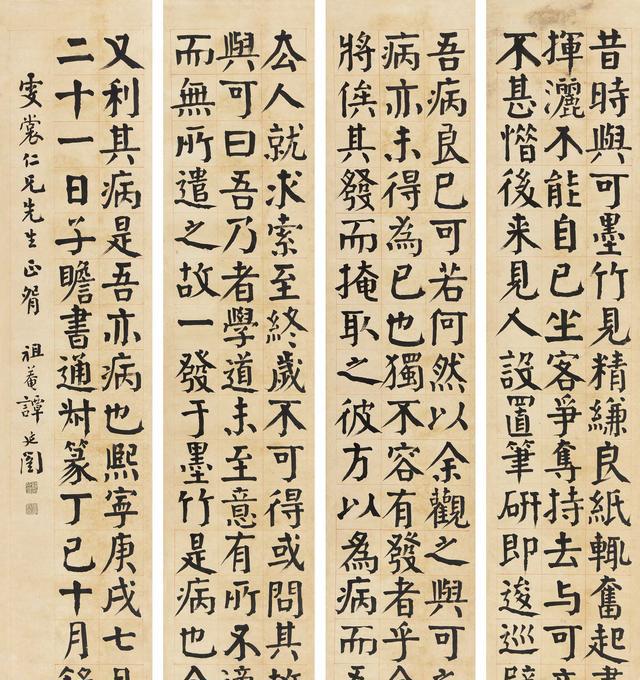 昔時與可墨竹見精縑良紙輒奮起書
揮灑不能自已坐客爭奪持去与可亦
不甚惜後来見人設置筆研即逡巡避
去人就求索至終歲不可得或問其故
與可曰吾乃者學道未至意有所不適
而無所遣之故一發于墨竹是病也今
吾病良已可若何然以余觀之與可之
病亦未得為已也獨不容有發者乎余
將俟其發而掩取之彼方以為病而吾
又利其病是吾亦病也熙寧庚戌七月
二十一日子瞻書通叔篆丁巳十月
雯裳仁兄先生正 祖菴譚延闓